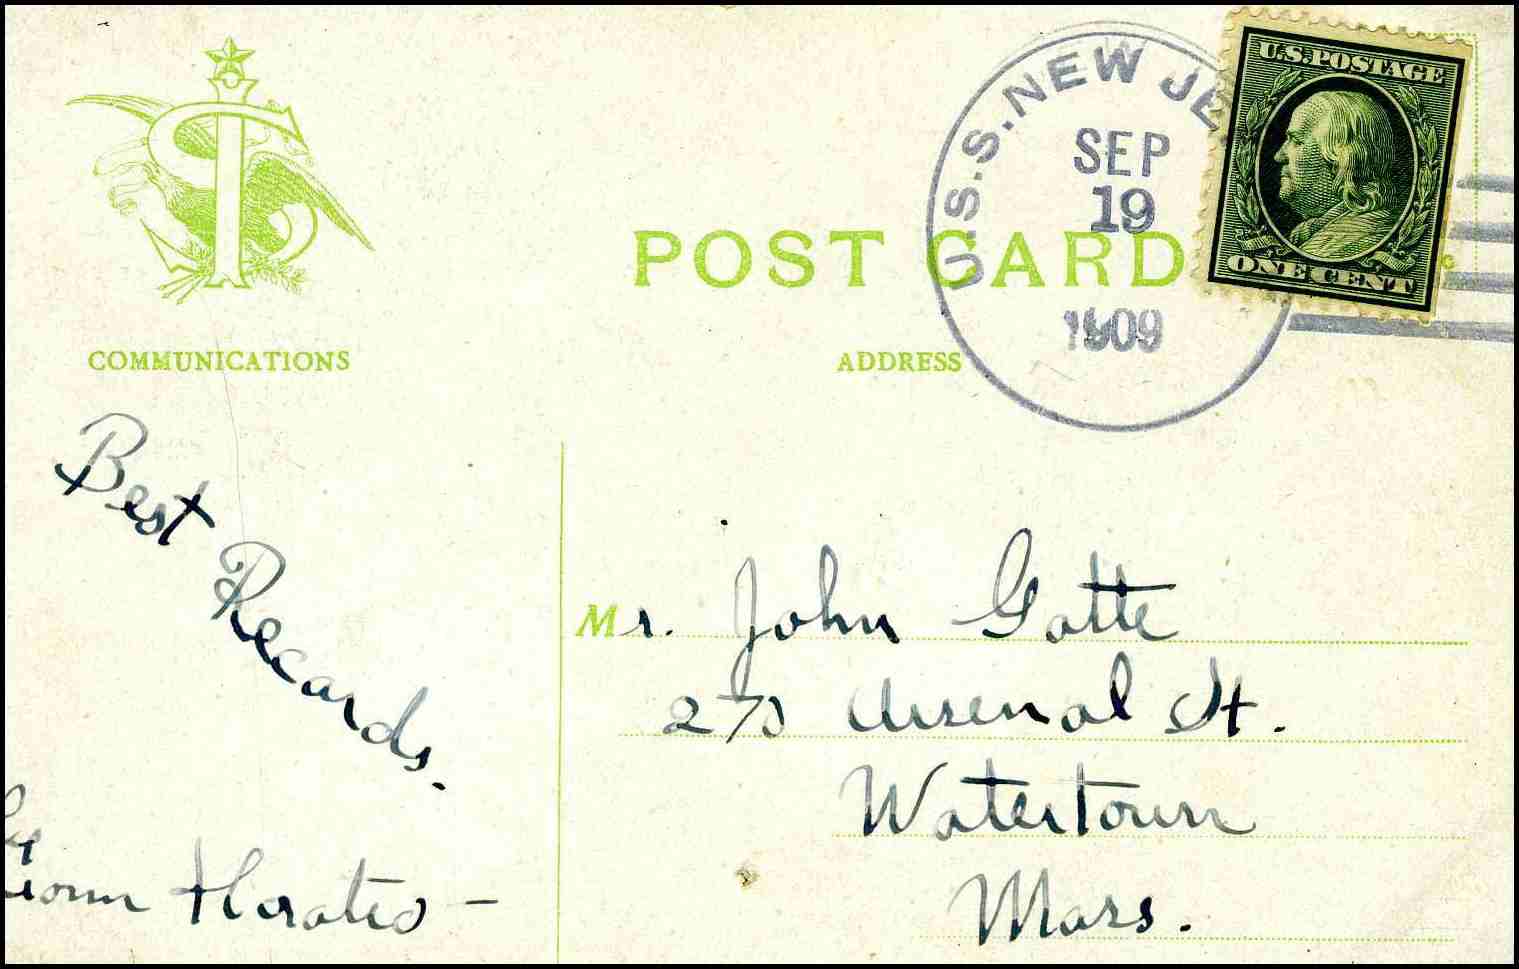 U.S.S. NEW JE
SEP
19
1909
U.S. POSTAGE
ONE CENT
POST CARD
COMMUNICATIONS
ADDRESS
Best
Recards.
Horatio -
Mr. John Gatte
Arsenal St.
Watertown
Mass.